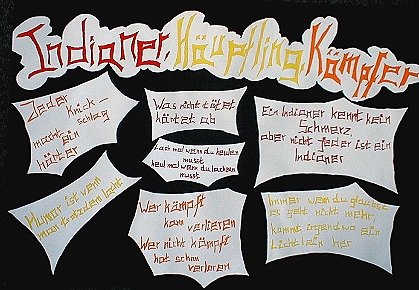 Indianer, Häuptling, Kämpfer
Jeder Knick-
schlag
macht
ein
härter
Was nicht tötet
härtet ab
Lach mal wenn du heulen
musst
heul mal wenn du lachen
musst
Ein Indianer kennt kein
Schmerz,
aber nicht jeder ist ein
Indianer
Humor ist wenn
man trotzdem lacht
Wer kämpft
kann verlieren
Wer nicht kämpft
hat schon
verloren
Immer wenn du glaubst
es geht nicht mehr,
kommt irgendwo ein
Lichtlein her